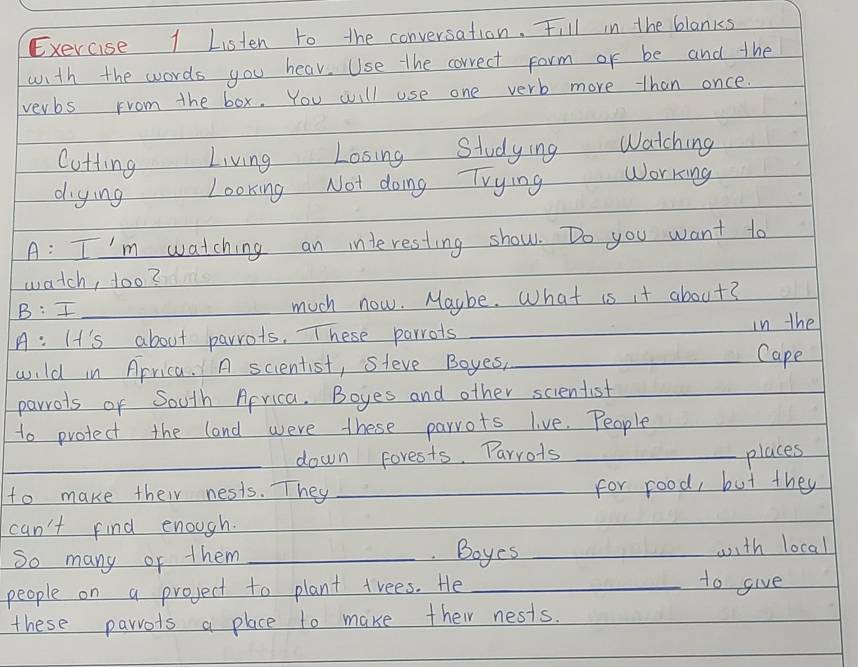 Exercise 1 Listen to the conversation. Fill in the blanks
with the words you hear. Use the correct form of be and the
verbs from the box. You will use one verb more than once.
Cutting Living Losing Studying Watching
diying Looking Not doing Trying Working
A: I'm watching an interesting show. Do you want to
watch, too?
B: I ____________ much now. Maybe. What is it about?
A: It's about parrots. These parrots ____________ in the
wild in Africa. A scientist, Steve Boyes, ____________ Cape
parrots of South Africa. Boyes and other scientist ____________
to protect the land were these parrots live. People
____________ down forests. Parrots ____________ places
to make their nests. They ____________ for food, but they
can't find enough.
So many of them ____________. Boyes ____________ with local
people on a project to plant trees. He ____________ to give
these parrots a place to make their nests.